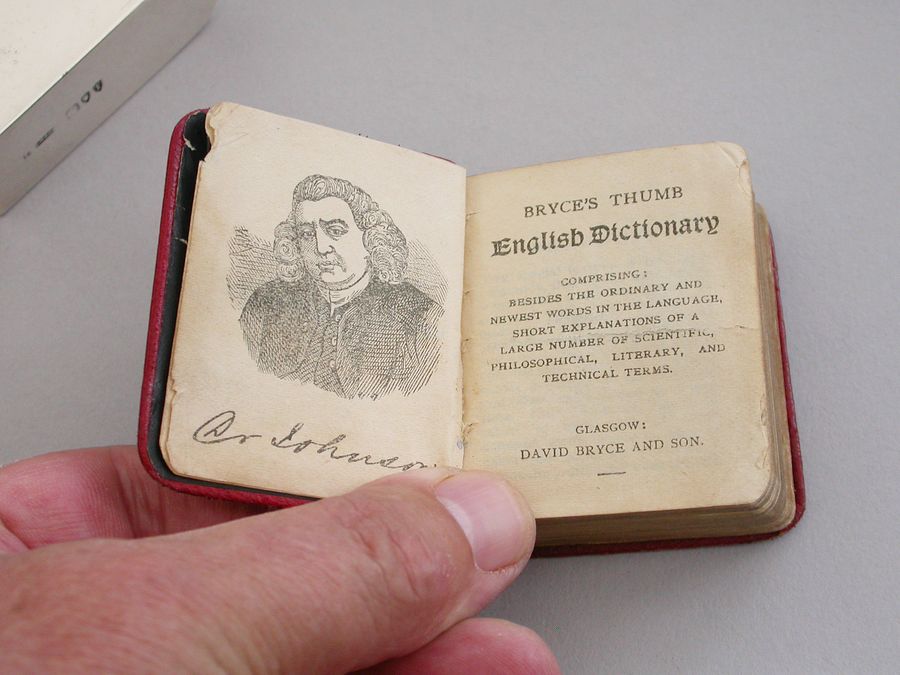 Dr Johnson
BRYCE'S THUMB
English Dictionary
COMPRISING:
BESIDES THE ORDINARY AND
NEWEST WORDS IN THE LANGUAGE,
SHORT EXPLANATIONS OF A
LARGE NUMBER OF SCIENTIFIC,
PHILOSOPHICAL, LITERARY, AND
TECHNICAL TERMS.
GLASGOW:
DAVID BRYCE AND SON.